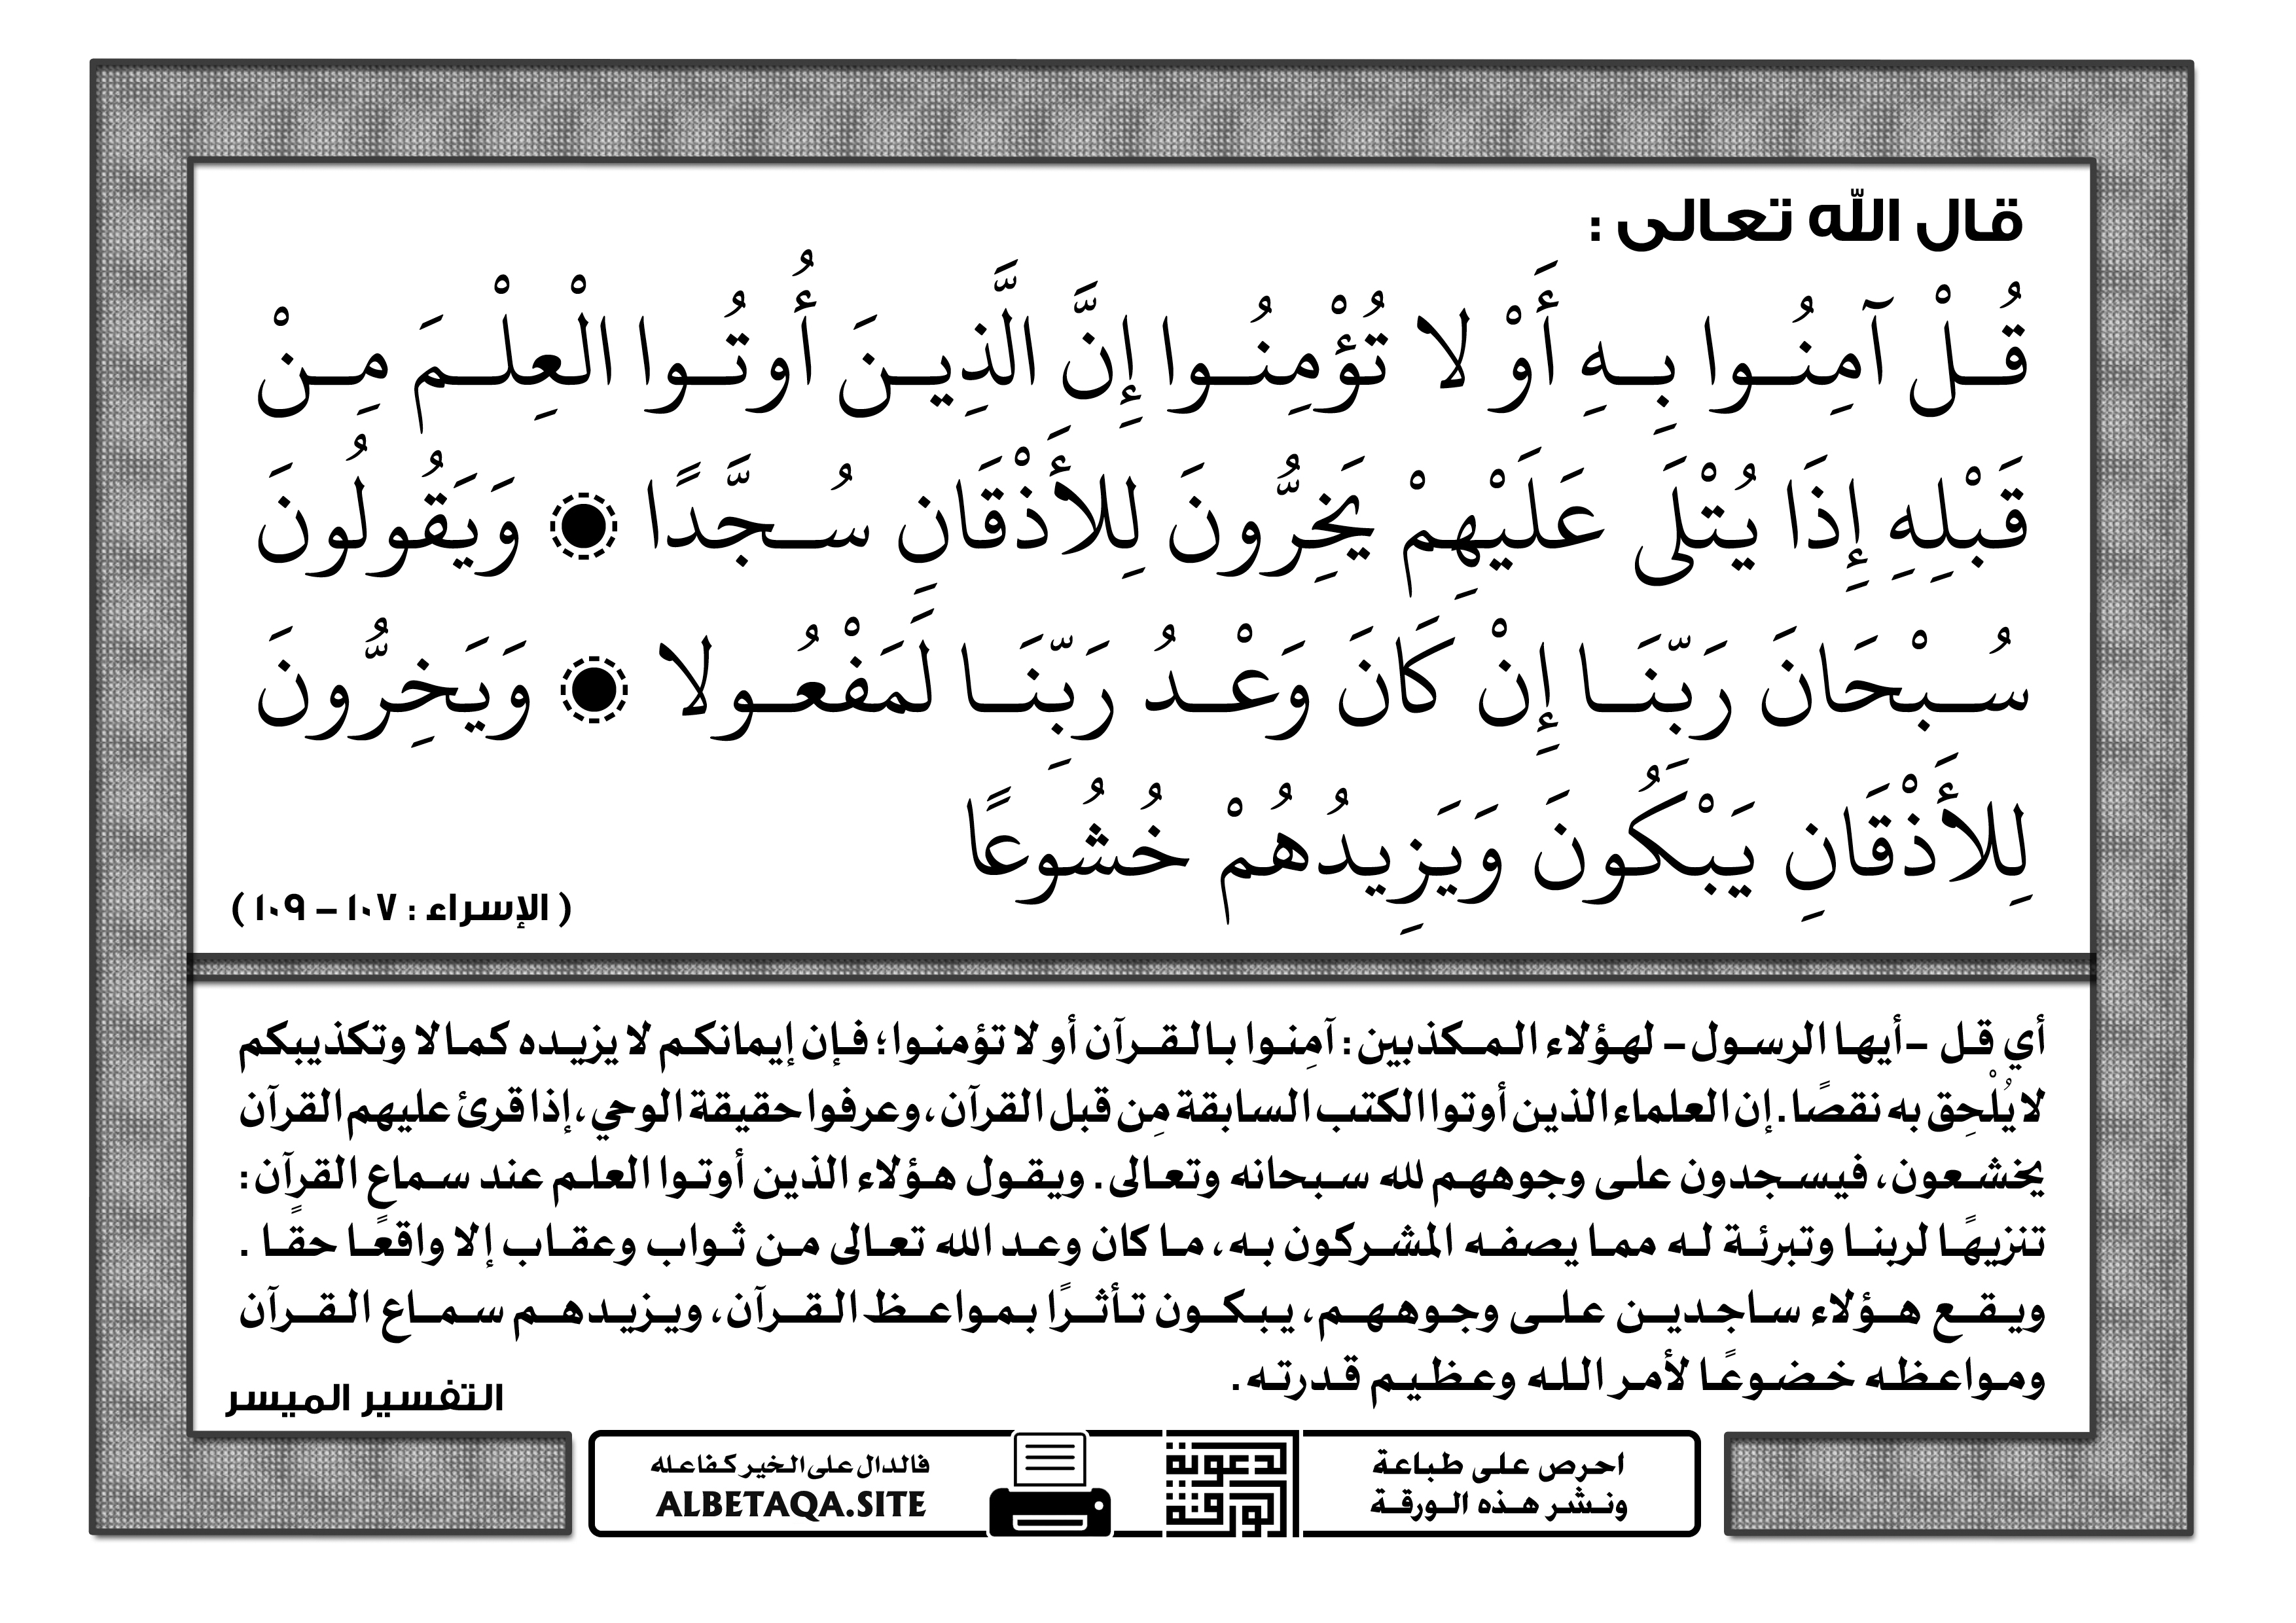 قال الله تعالى :
قُلْ آمِنُوا بِهِ أَوْ لا تُؤْمِنُوا إِنَّ الَّذِينَ أُوتُوا الْعِلْمَ مِنْ
قَبْلِهِ إِذَا يُتْلَى عَلَيْهِمْ يَخِرُّونَ لِلأَذْقَانِ سُجَّدًا وَيَقُولُونَ
سُبْحَانَ رَبِّنَا إِنْ كَانَ وَعْدُ رَبِّنَا لَمَفْعُولا وَيَخِرُّونَ
لِلأَذْقَانِ يَبْكُونَ وَيَزِيدُهُمْ خُشُوعًا
( الإسراء : ١٠٧ – ١٠٩ )
أي قل –أيها الرسول– لهؤلاء المكذبين: آمِنوا بالقرآن أو لا تؤمنوا؛ فإن إيمانكم لا يزيده كمالا وتكذيبكم
لا يُلْحِق به نقصًا. إن العلماء الذين أوتوا الكتب السابقة مِن قبل القرآن، وعرفوا حقيقة الوحي، إذا قرئ عليهم القرآن
يخشعون، فيسجدون على وجوههم لله سبحانه وتعالى. ويقول هؤلاء الذين أوتوا العلم عند سماع القرآن:
تنزيهًا لربنا وتبرئة له مما يصفه المشركون به، ما كان وعد الله تعالى من ثواب وعقاب إلا واقعًا حقًا .
ويقع هؤلاء ساجدين على وجوههم، يبكون تأثرًا بمواعظ القرآن، ويزيدهم سماع القرآن
ومواعظه خضوعًا لأمر الله وعظيم قدرته.
التفسير الميسر
احرص على طباعة
ونشر هذه الورقة
الدعوية
الورقة
فالدال على الخير كفاعله
ALBETAQA.SITE